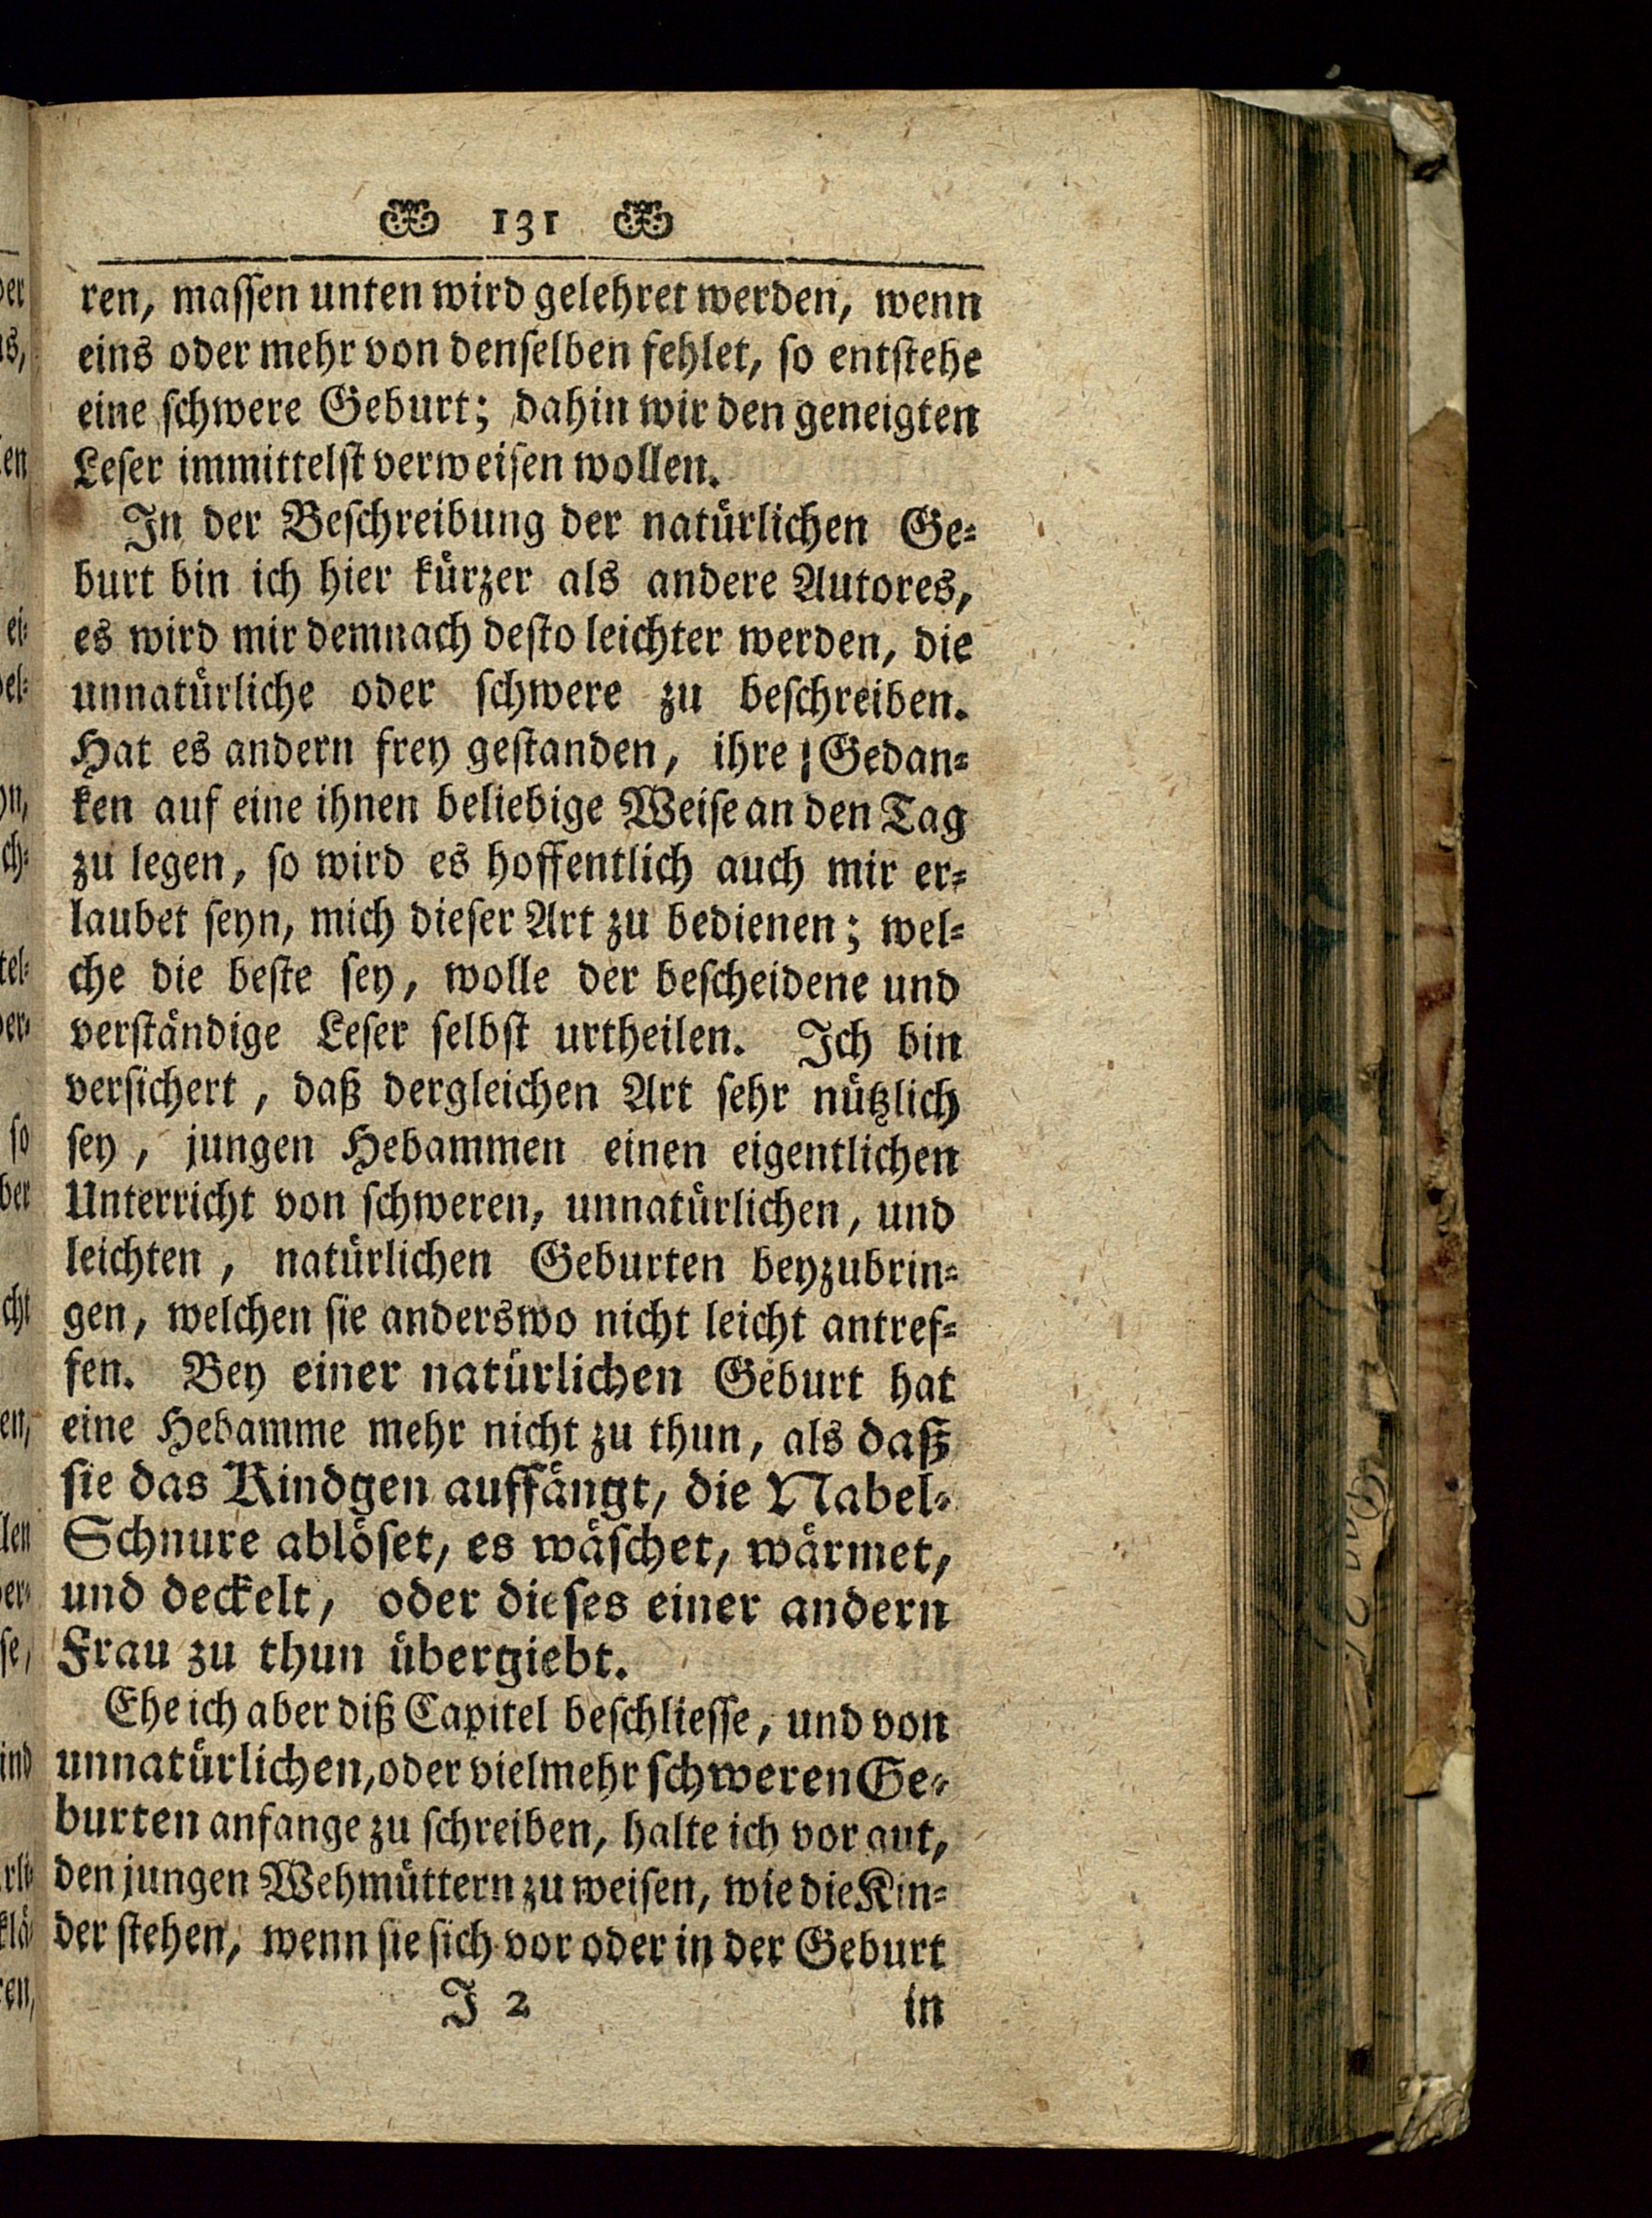 131
ren, maſſen unten wird gelehret werden, wenn
eins oder mehr von denſelben fehlet, ſo entſtehe
eine ſchwere Geburt; dahin wir den geneigten
Leſer immittelſt verweiſen wollen.
In der Beſchreibung der natürlichen Ge⸗
burt bin ich hier kürzer als andere Autores,
es wird mir demnach deſto leichter werden, die
unnatürliche oder ſchwere zu beſchreiben.
Hat es andern frey geſtanden, ihre Gedan⸗
ken auf eine ihnen beliebige Weiſe an den Tag
zu legen, ſo wird es hoffentlich auch mir er⸗
laubet ſeyn, mich dieſer Art zu bedienen; wel⸗
che die beſte ſey, wolle der beſcheidene und
verſtändige Leſer ſelbſt urtheilen. Ich bin
verſichert, daß dergleichen Art ſehr nützlich
ſey, jungen Hebammen einen eigentlichen
Unterricht von ſchweren, unnatürlichen, und
leichten, natürlichen Geburten beyzubrin⸗
gen, welchen ſie anderswo nicht leicht antref⸗
fen. Bey einer natürlichen Geburt hat
eine Hebamme mehr nicht zu thun, als daß
ſie das Kindgen auffängt, die Nabel⸗
Schnure ablöſet, es wäſchet, wärmet,
und deckelt, oder dieſes einer andern
Frau zu thun übergiebt.
Ehe ich aber diß Capitel beſchlieſſe, und von
unnatürlichen, oder vielmehr ſchweren Ge⸗
burten anfange zu ſchreiben, halte ich vor gut,
den jungen Wehmüttern zu weiſen, wie die Kin⸗
der ſtehen, wenn ſie ſich vor oder in der Geburt
J 2 in